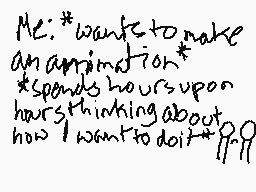 Me: *wants to make
an animation*
*spends hours upon
hours thinking about
how I want to do it*